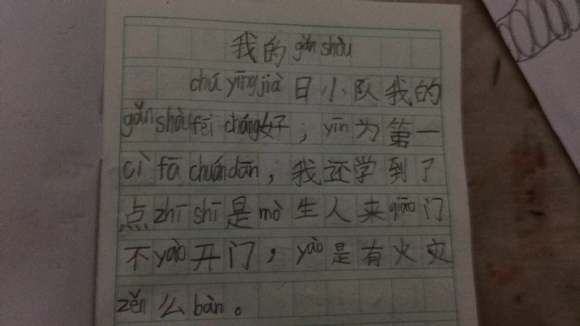 我的gǎn shòu
chú yīng jià日小队我的
gǎn shòu fēi cháng好；yīn为第一
cì fā chuán dān，我还学到了
点zhī shi是mò生人来qiāo门
不yào开门，yào是有火灾
zěn么bàn。